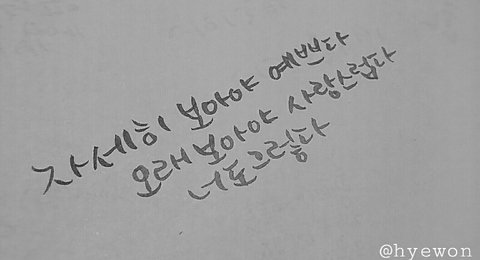 자세히 보아야 예쁘다
오래 보아야 사랑스럽다
너도 그렇다
@hyewon